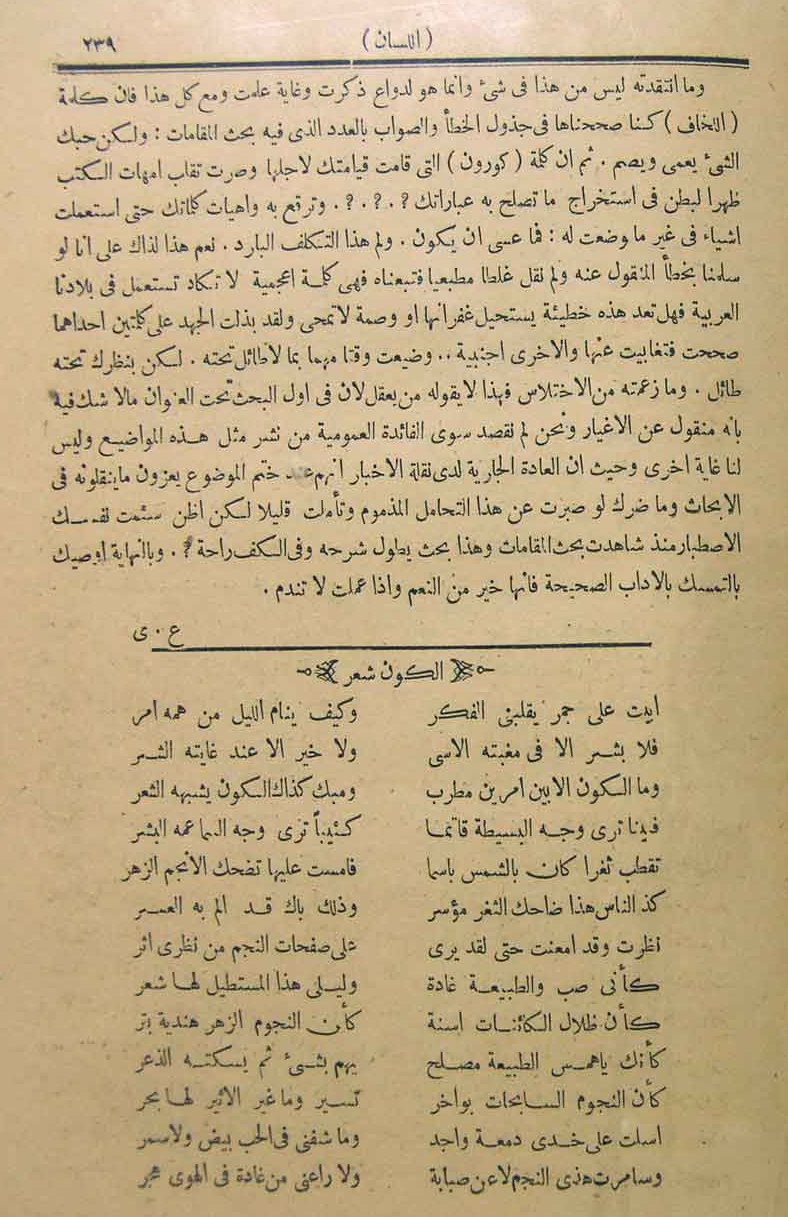 (اللسان) ٢٣٩
وما انتقدته ليس من هذا فى شئ وانما هو لدواع ذكرت وغاية علمت ومع كل هذا فان كلمة
(الالخاف) كنا صححناها فى جدول الخطأ والصواب بالعدد الذى فيه بحث المقامات : ولكن حبك
الشئ يعمى ويصم . ثم ان كلة (كورون) التى قامت قيامتك لاجلها وصرت تقلب امهات الكتب
ظهرا لبطن فى استخراج ما تصلح به عباراتك ? . ? . ? . وترقع به واهيات كلماتك حتى استعملت
اشياء فى غير ما وضعت له : فما عسى ان يكون . ولم هذا التكلف البارد . نعم هذا لذاك على انا لو
سلمنا بخطأ المنقول عنه ولم نقل غلطا مطبعيا فتبعناه فهى كلمة اعجمية لا تكاد تستعمل فى بلادنا
العربية فهل تعد هذه خطيئة يستحيل غفرانها او وصمة لا تمحى ولقد بذلت الجهد على كلتين احداهما
صححت فتغابيت عنها والاخرى اجنبية . . وضيعت وقتا مهما بما لا طائل تحته . لكن بنظرك تحته
طائل . وما زعمته من الاختلاس فهذا لا يقوله من يعقل لان فى اول البحث تحت العنوان مالا شك فيه
بانه منقول عن الاغيار ونحن لم نقصد سوى الفائدة العمومية من نشر مثل هذه المواضيع وليس
لنا غاية اخرى وحيث ان العادة الجارية لدى نقلة الاخبار انهم ختم الموضوع يعزون ماينقلونه فى
الابحاث وما ضرك لو صبرت عن هذا التحامل المذموم وتأملت قليلا لكن اظن سئمت نفسك
الاصطبار منذ شاهدت بحث المقامات وهذا بحث يطول شرحه وفى الكف راحة ? . وبالنهاية اوصيك
بالتمسك بالاداب الصحيحة فانها خير من النعم واذا عملت لا تندم .
ع . ى
الكون شعر
ابيت على جمر يقلبنى الفكر وكيف ينام الليل من همه امر
فلا بشر الا فى مغبته الاسى ولا خير الا عند غايته الشر
وما الكون الا بين امرين مطرب ومبك كذاك الكون يشبهه الشعر
فبينا ترى وجه البسيطة قاتما كئيباً ترى وجه السما عمه البشر
تقطب ثغرا كان بالشمس باسما فامست عليها تضحك الانجم الزهر
كذ الناس هذا ضاحك الثغر مؤسر وذلك باك قد الم به العسر
نظرت وقد امعنت حتى لقد يرى على صفحات النجم من نظرى اثر
كأنى صب والطبيعة غادة وليلى هذا المستطيل لها شعر
كأن ظلال الكائنات اسنة كأن النجوم الزهر هندية بتر
كأنك ياهمس الطبيعة مصلح يهم بشىء ثم يسكته الذعر
كأن النجوم السابحات بواخر تسير وما غير الاثير لها بحر
اسلت على خدى دمعة واجد وما شفنى فى الحب بيض ولاسمر
وسامرت هذى النجم لا عن صبابة ولا راعنى من غادة فى الهوى هجر